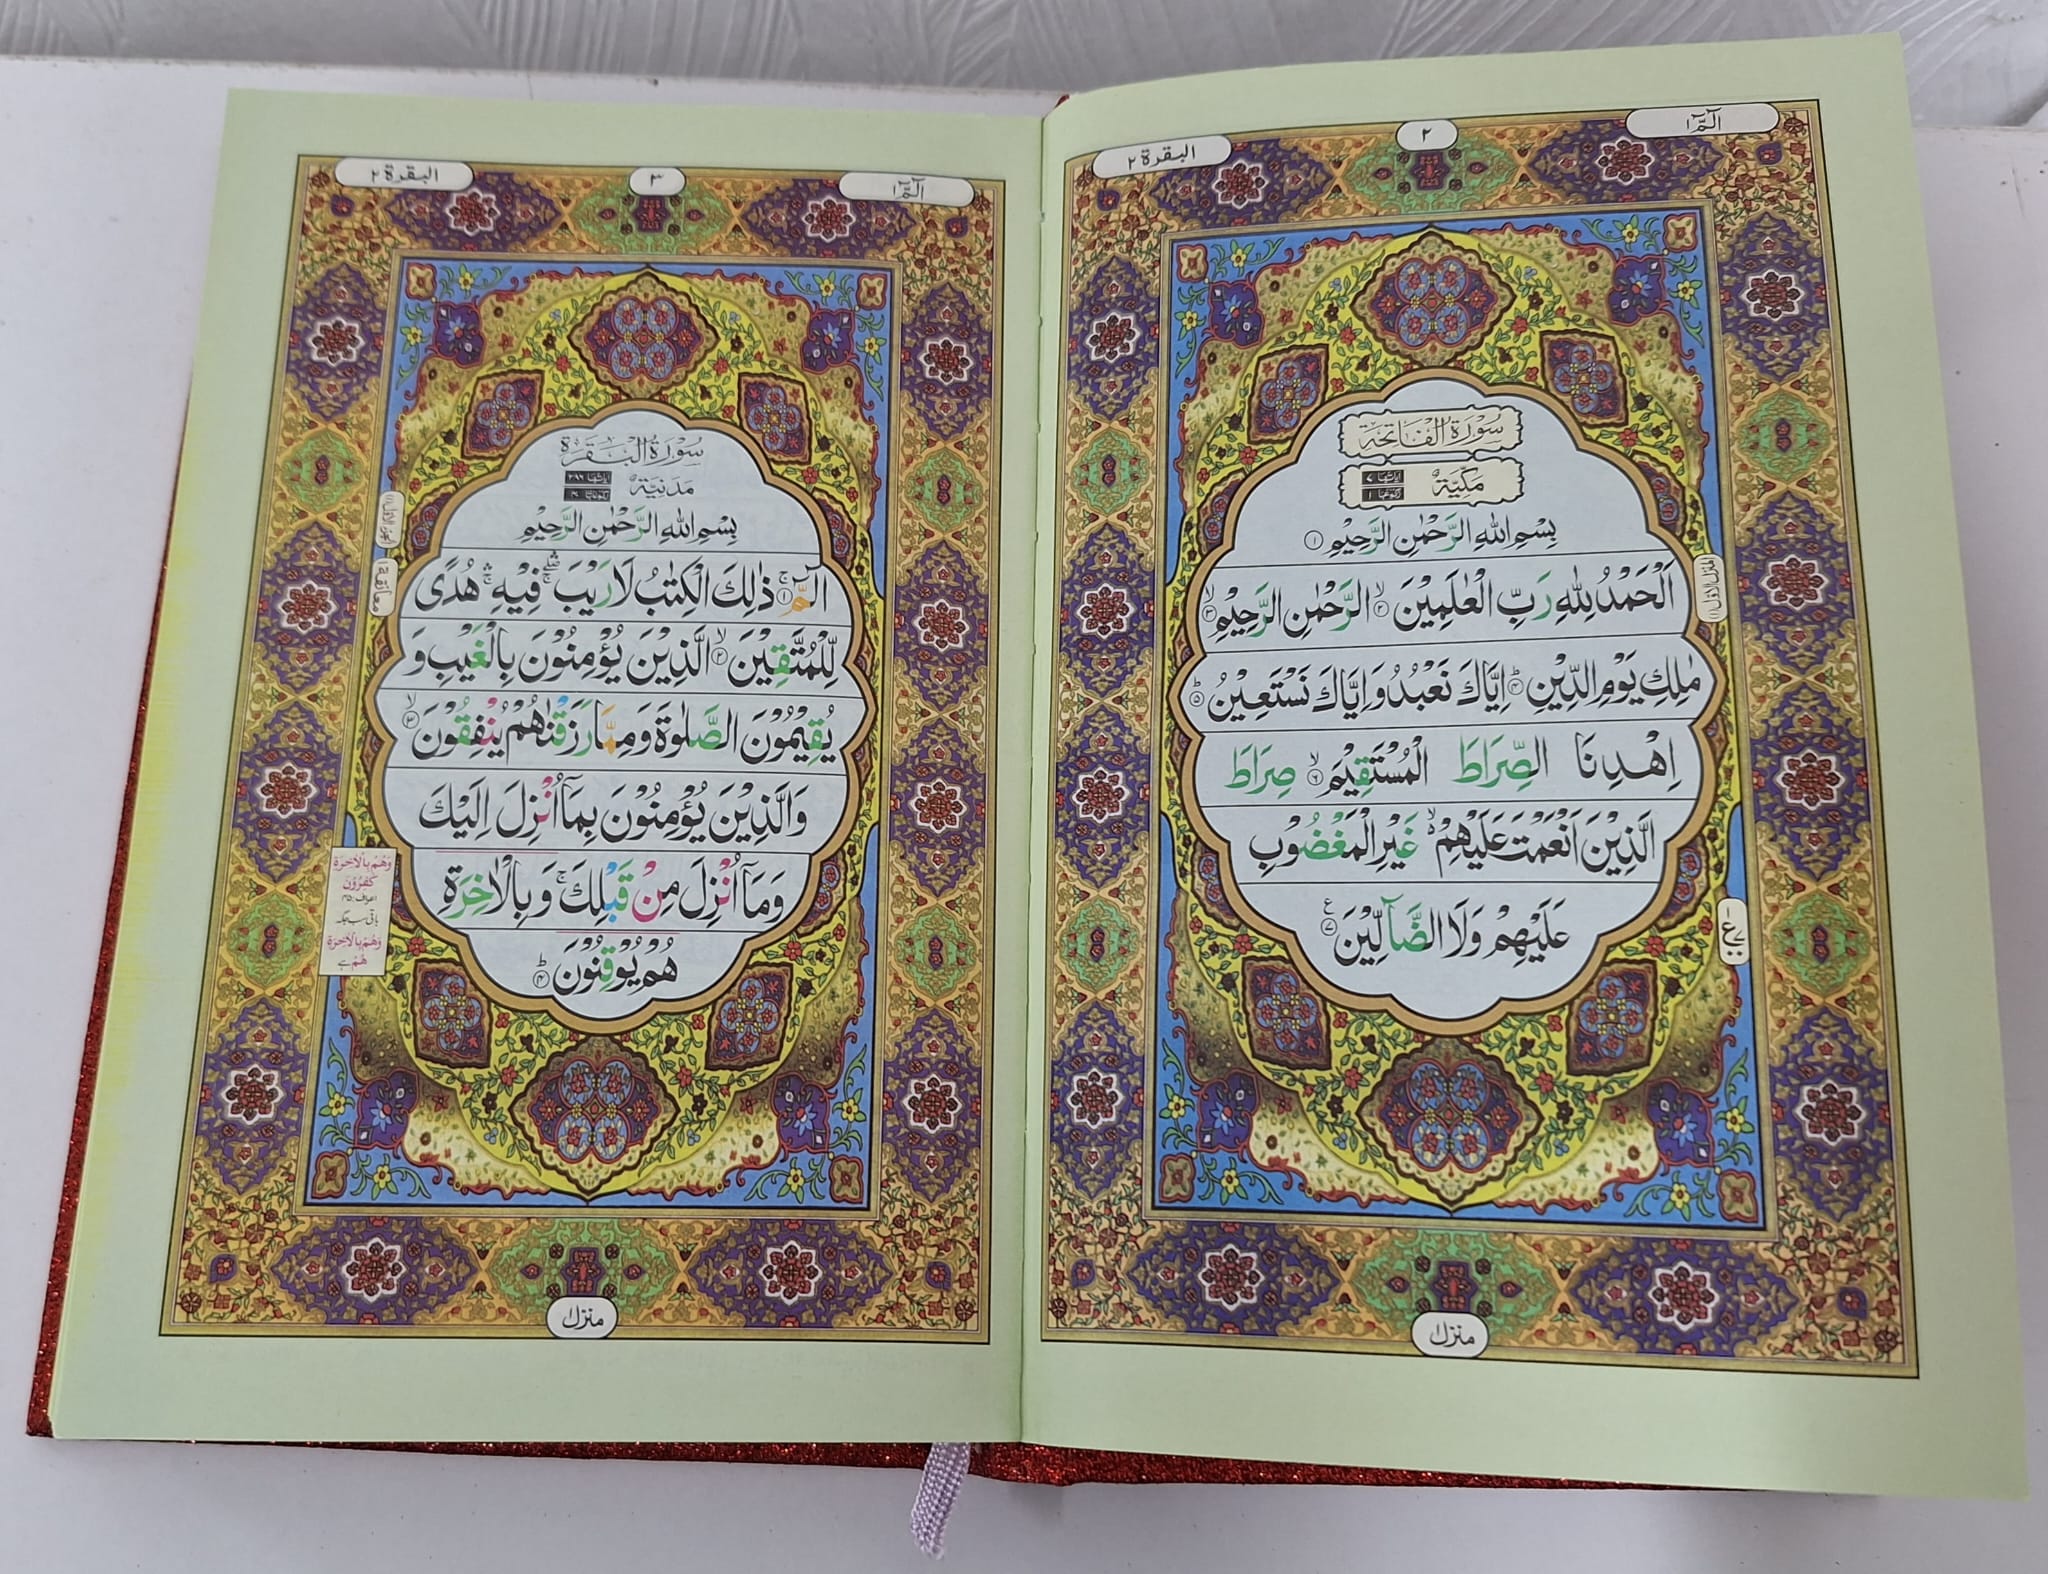 الٓمّٓ ١
٢
البقرة ٢
سُوْرَةُ الْفَاتِحَةِ
مَكِّيَّةٌ
اٰیاتُهَا ٧
رُكُوْعُهَا ١
بِسْمِ اللّٰهِ الرَّحْمٰنِ الرَّحِيْمِ ١
اَلْحَمْدُ لِلّٰهِ رَبِّ الْعٰلَمِيْنَ ۙ٢ الرَّحْمٰنِ الرَّحِيْمِ ۙ٣
مٰلِكِ يَوْمِ الدِّيْنِ ؕ٤ اِيَّاكَ نَعْبُدُ وَ اِيَّاكَ نَسْتَعِيْنُ ؕ٥
اِهْدِنَا الصِّرَاطَ الْمُسْتَقِيْمَ ۙ٦ صِرَاطَ
الَّذِيْنَ اَنْعَمْتَ عَلَيْهِمْ ۙ۬ غَيْرِ الْمَغْضُوْبِ
عَلَيْهِمْ وَلَا الضَّآلِّيْنَ ٧ ع
المنزل الاول (١)
منزل ١
الٓمّٓ ١
٣
البقرة ٢
سُوْرَةُ الْبَقَرَةِ
مَدَنِيَّةٌ
اٰیاتُهَا ٢٨٦
رُكُوْعَاتُهَا ٤٠
بِسْمِ اللّٰهِ الرَّحْمٰنِ الرَّحِيْمِ
الٓمّٓ ۚ١ ذٰلِكَ الْكِتٰبُ لَا رَيْبَ ۛۖۚ فِيْهِ ۛۚ هُدًى
لِّلْمُتَّقِيْنَ ۙ٢ الَّذِيْنَ يُؤْمِنُوْنَ بِالْغَيْبِ وَ
يُقِيْمُوْنَ الصَّلٰوةَ وَ مِمَّا رَزَقْنٰهُمْ يُنْفِقُوْنَ ۙ٣
وَالَّذِيْنَ يُؤْمِنُوْنَ بِمَاۤ اُنْزِلَ اِلَيْكَ
وَمَاۤ اُنْزِلَ مِنْ قَبْلِكَ ۚ وَ بِالْاٰخِرَةِ
هُمْ يُوْقِنُوْنَ ؕ٤
الجزء الاول (١)
معانقة ١
وَهُمْ بِالْاٰخِرَةِ
كٰفِرُوْنَ
اعراف: ٤٥
باقی سب جگہ
وَهُمْ بِالْاٰخِرَةِ
هُمْ ہے
منزل ١